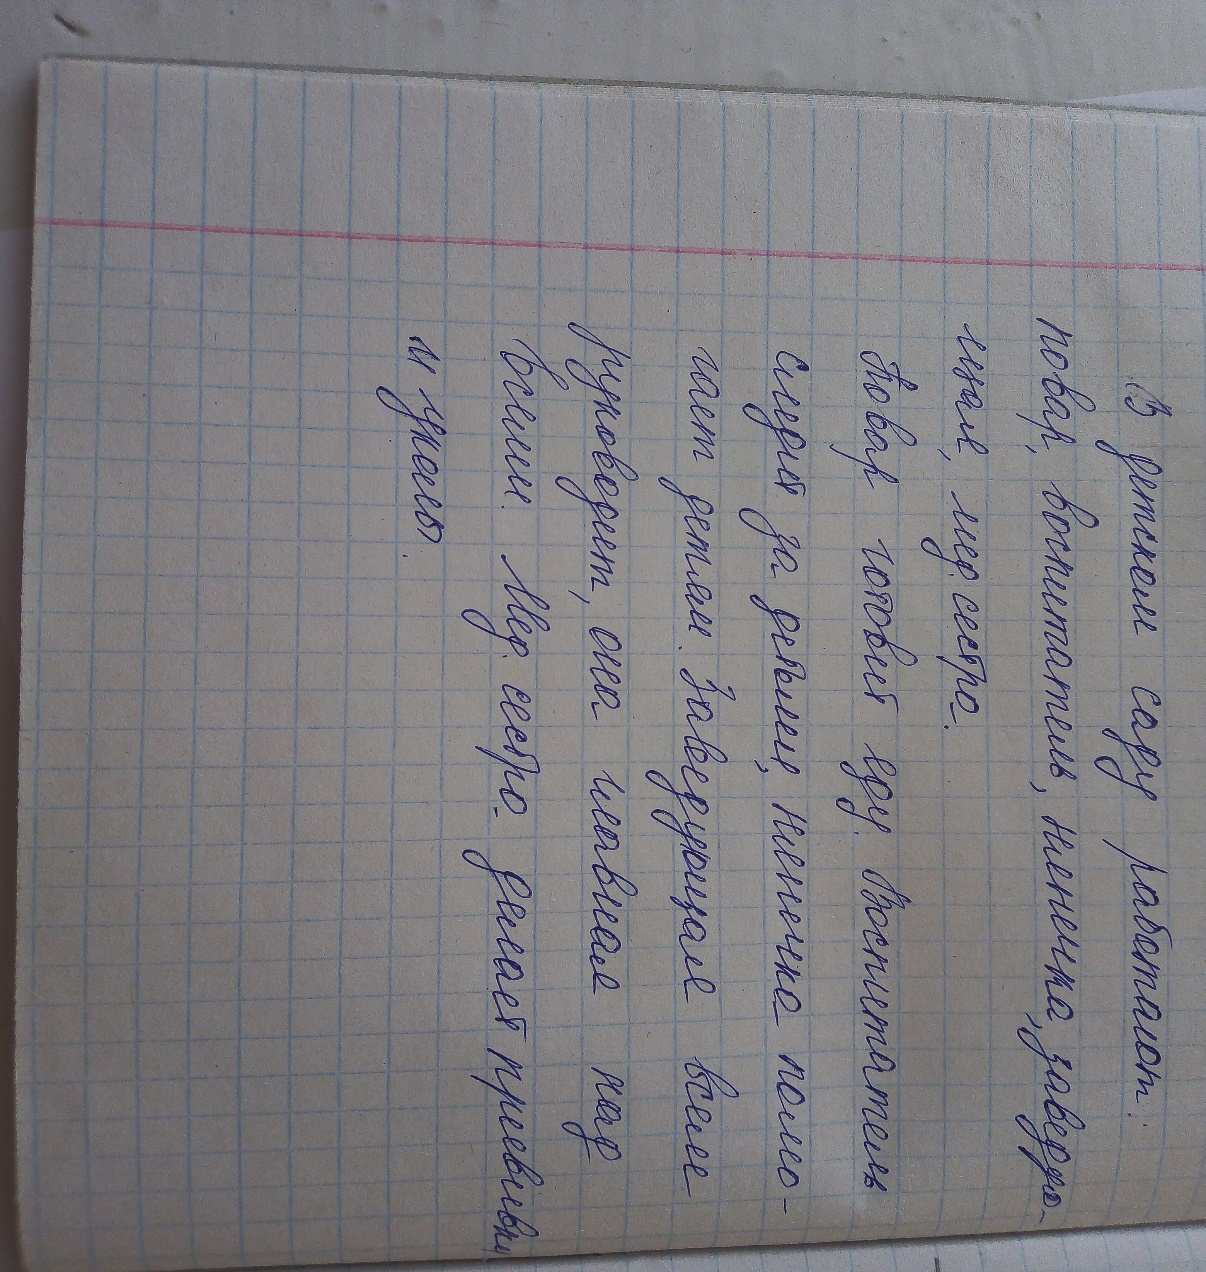 В детском саду работают:
повар, воспитатель, нянечка, заведую-
щая, мед. сестра.
Повар готовит еду. Воспитатель
следит за детьми, нянечка помо-
гает детям. Заведующая всем
руководит, она главная над
всеми. Мед. сестра делает прививки
и уколы.